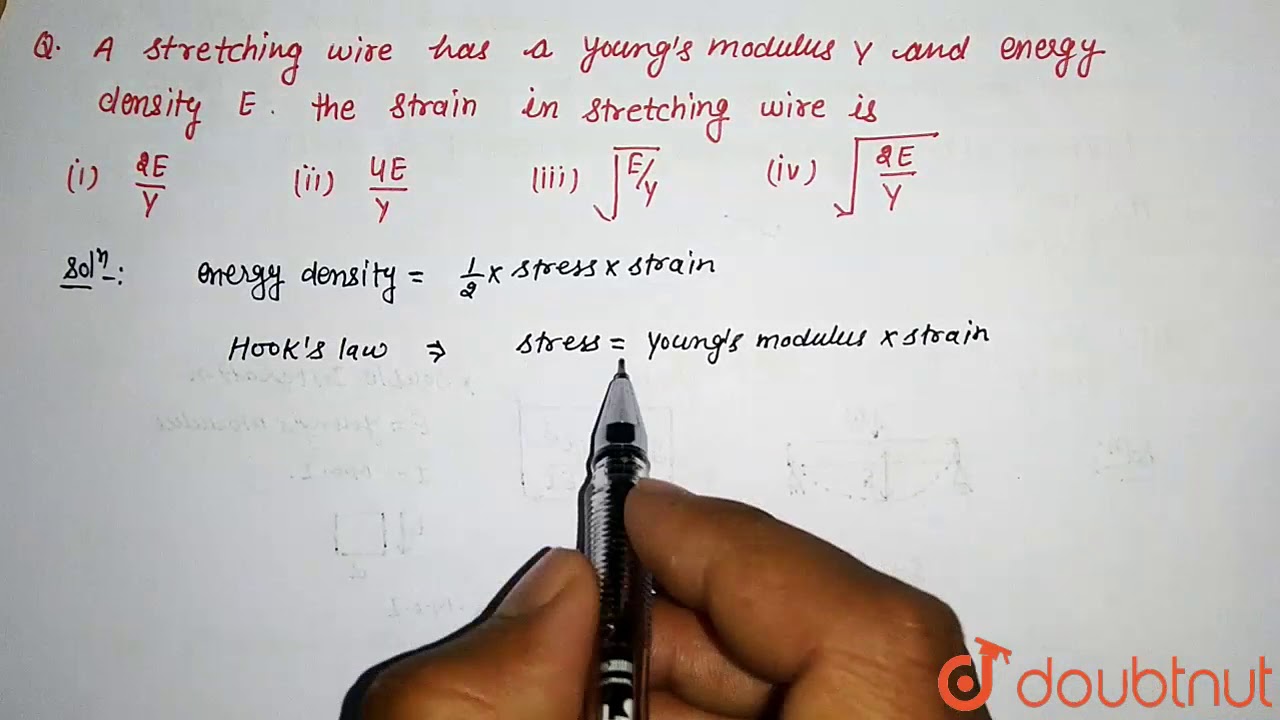 Q. A stretching wire has a young's modulus Y and energy
density E. the strain in stretching wire is
(i) 2E/Y (ii) 4E/Y (iii) √E/Y (iv) √2E/Y
Solⁿ-: energy density = 1/2 x stress x strain
Hook's law ⇒ stress = young's modulus x strain
doubtnut